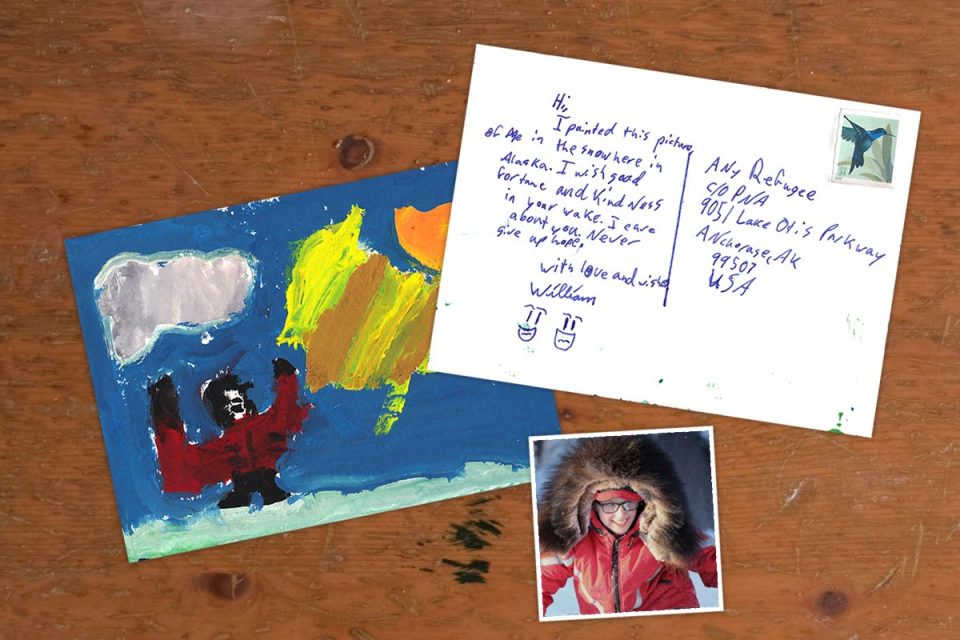 Hi,
I painted this picture
of Me in the snow here in
Alaska. I wish good
fortune and kindness
in your wake. I care
about you. Never
give up hope.
with love and wishes
William
Any Refugee
c/o PNA
9051 Lake Otis Parkway
Anchorage, AK
99507
USA